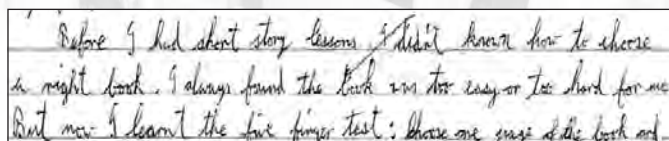 Before I had short story lessons I didn't known how to choose
a right book. I always found the book was too easy or too hard for me
But now I learnt the five finger test: Choose one page of the book and